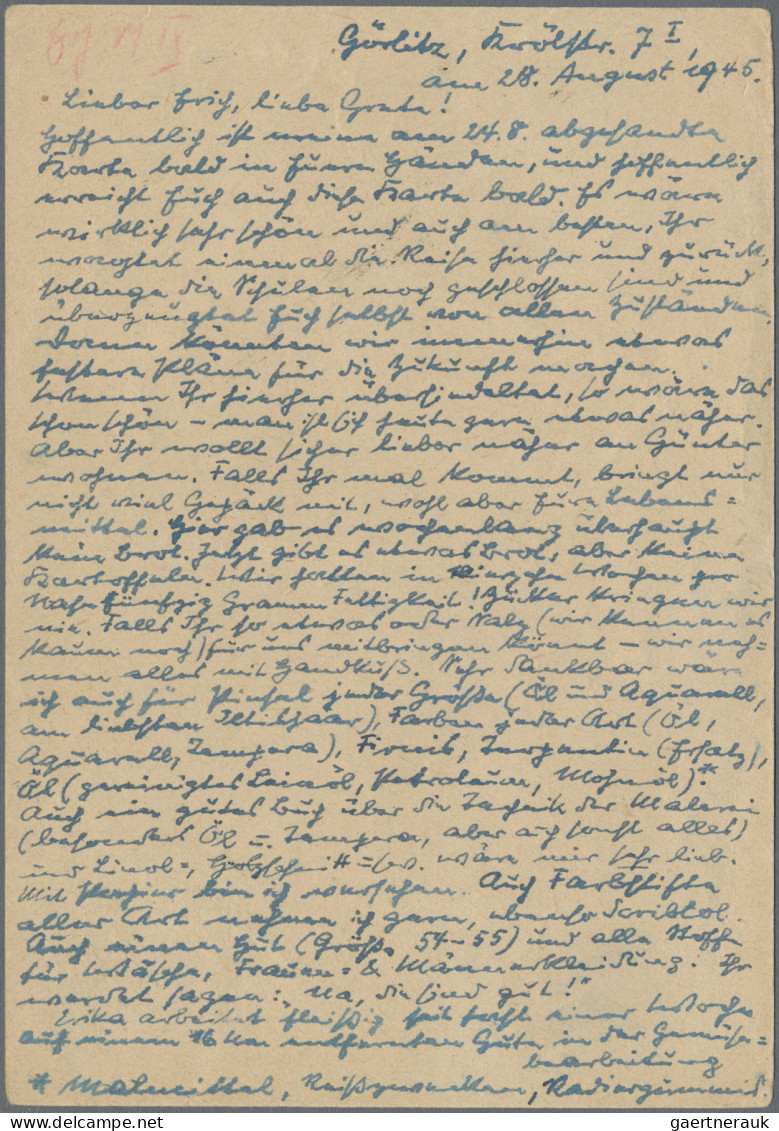 Görlitz, Krölstr. 7 I,
am 28. August 1945.
Lieber Erich, liebe Grete!
Hoffentlich ist meine am 24.8. abgesandte
Karte bald in Euren Händen, und hoffentlich
erreicht Euch auch diese Karte bald. Es wäre
wirklich sehr schön und auch am besten, Ihr
machtet einmal die Reise hierher und zurück,
solange die Schulen noch geschlossen sind und
überzeugtet Euch selbst von allen Zuständen.
Dann könnten wir immerhin etwas
festere Pläne für die Zukunft machen.
Wenn Ihr hierher übersiedeltet, so wäre das
schon schön – man ist sich heute gern etwas näher.
Aber Ihr wollt sicher lieber näher an Günter
wohnen. Falls Ihr mal kommt, bringt nur
nicht viel Gepäck mit, wohl aber Eure Lebens=
mittel. Hier gab es wochenlang überhaupt
kein Brot. Jetzt gibt es etwas Brot, aber keine
Kartoffeln. Wir hatten in vierzehn Wochen pro
Nase fünfzig Gramm Fettigkeit! Zucker kriegen wir
nie. Falls Ihr so etwas oder Salz (wir kennen es
kaum noch) für uns mitbringen könnt – wir neh=
men alles mit Handkuß. Sehr dankbar wäre
ich auch für Pinsel jeder Größe (Öl und Aquarell,
am liebsten Iltishaar), Farben jeder Art (Öl,
Aquarell, Tempera), Firnis, Terpentin (Ersatz),
Öl (gereinigtes Leinöl, Petroleum, Mohnöl).*
Auch ein gutes Buch über die Technik der Malerei
(besonders Öl u. Tempera, aber auch sonst alles)
und Linol=, Holzschnitt usw. wäre mir sehr lieb.
Mit Papier bin ich versehen. Auch Farbstifte
aller Art nehmen ich gern, ebenso Scribtol.
Auch einen Hut (Größe 54–55) und alle Stoffe
für Wäsche, Frauen= & Männerkleidung. Ihr
werdet sagen: „Na, die sind gut!"
Erika arbeitet fleißig seit fast einer Woche
auf einem 16 km entfernten Gute in der Gemüse=
bearbeitung
* Malmittel, Reißzwecken, Radiergummis.
© gaertnerauk